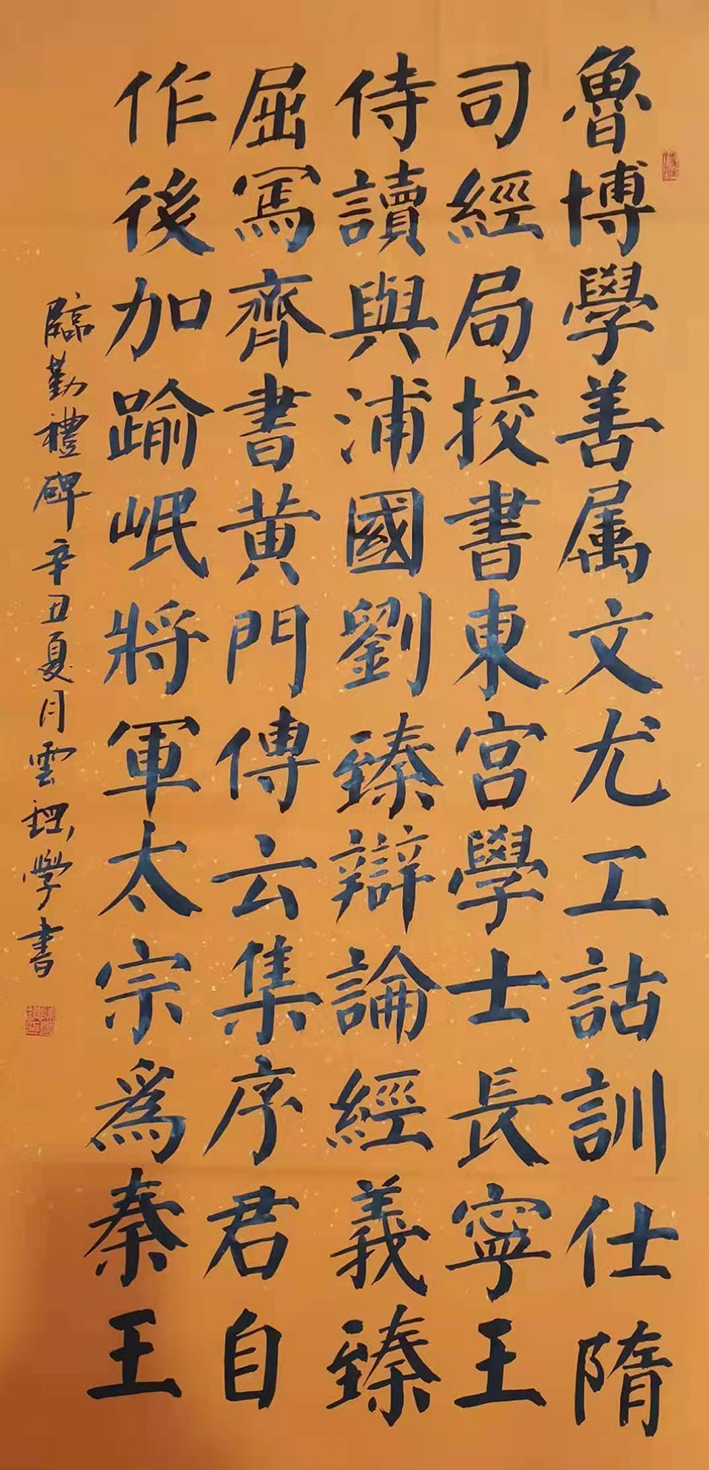 魯博學善属文尤工詁訓仕隋
司經局挍書東宮學士長寧王
侍讀與浦國劉臻辯論經義臻
屈焉齊書黄門傳云集序君自
作後加踰岷將軍太宗爲秦王
臨勤禮碑辛丑夏月雲
學書